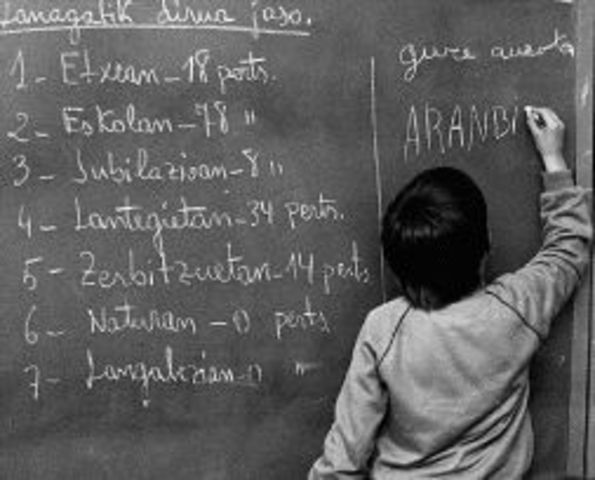 Lanagatik dirua jaso.
1 - Etxean - 18 perts.
2 - Eskolan - 78 "
3 - Jubilazioan - 8 "
4 - Lantegietan - 34 perts.
5 - Zerbitzuetan - 14 perts
6 - Naturan - 0 perts
7 - Langabezian - 0 "
gure auzoa
ARANBI